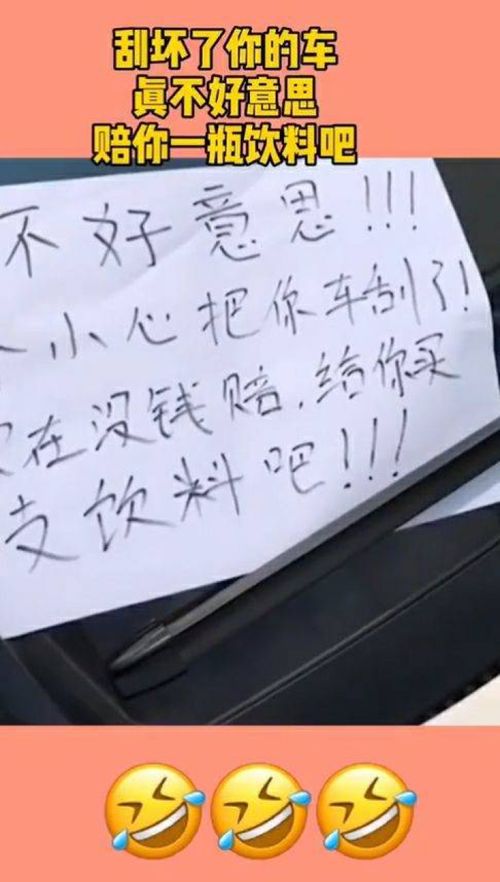 刮坏了你的车
真不好意思
赔你一瓶饮料吧
不好意思!!!
小心把你车刮了!
在没钱赔.给你买
支饮料吧!!!